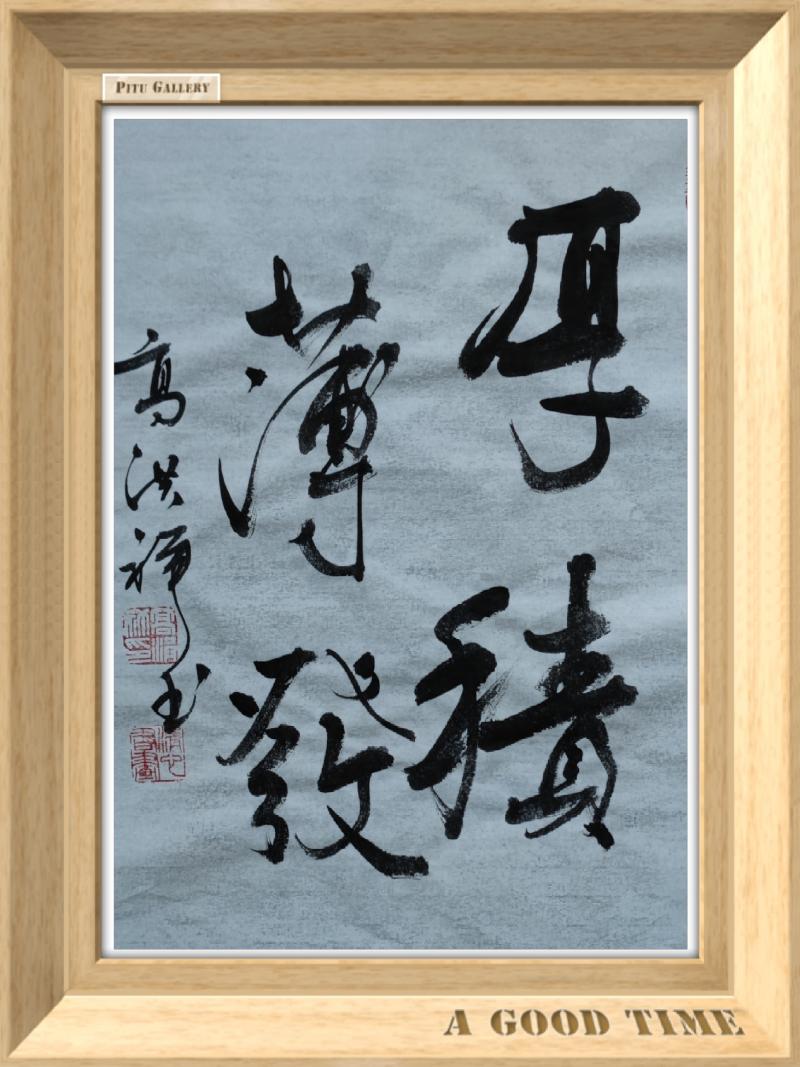 PITU GALLERY
厚積
薄發
高洪书
A GOOD TIME